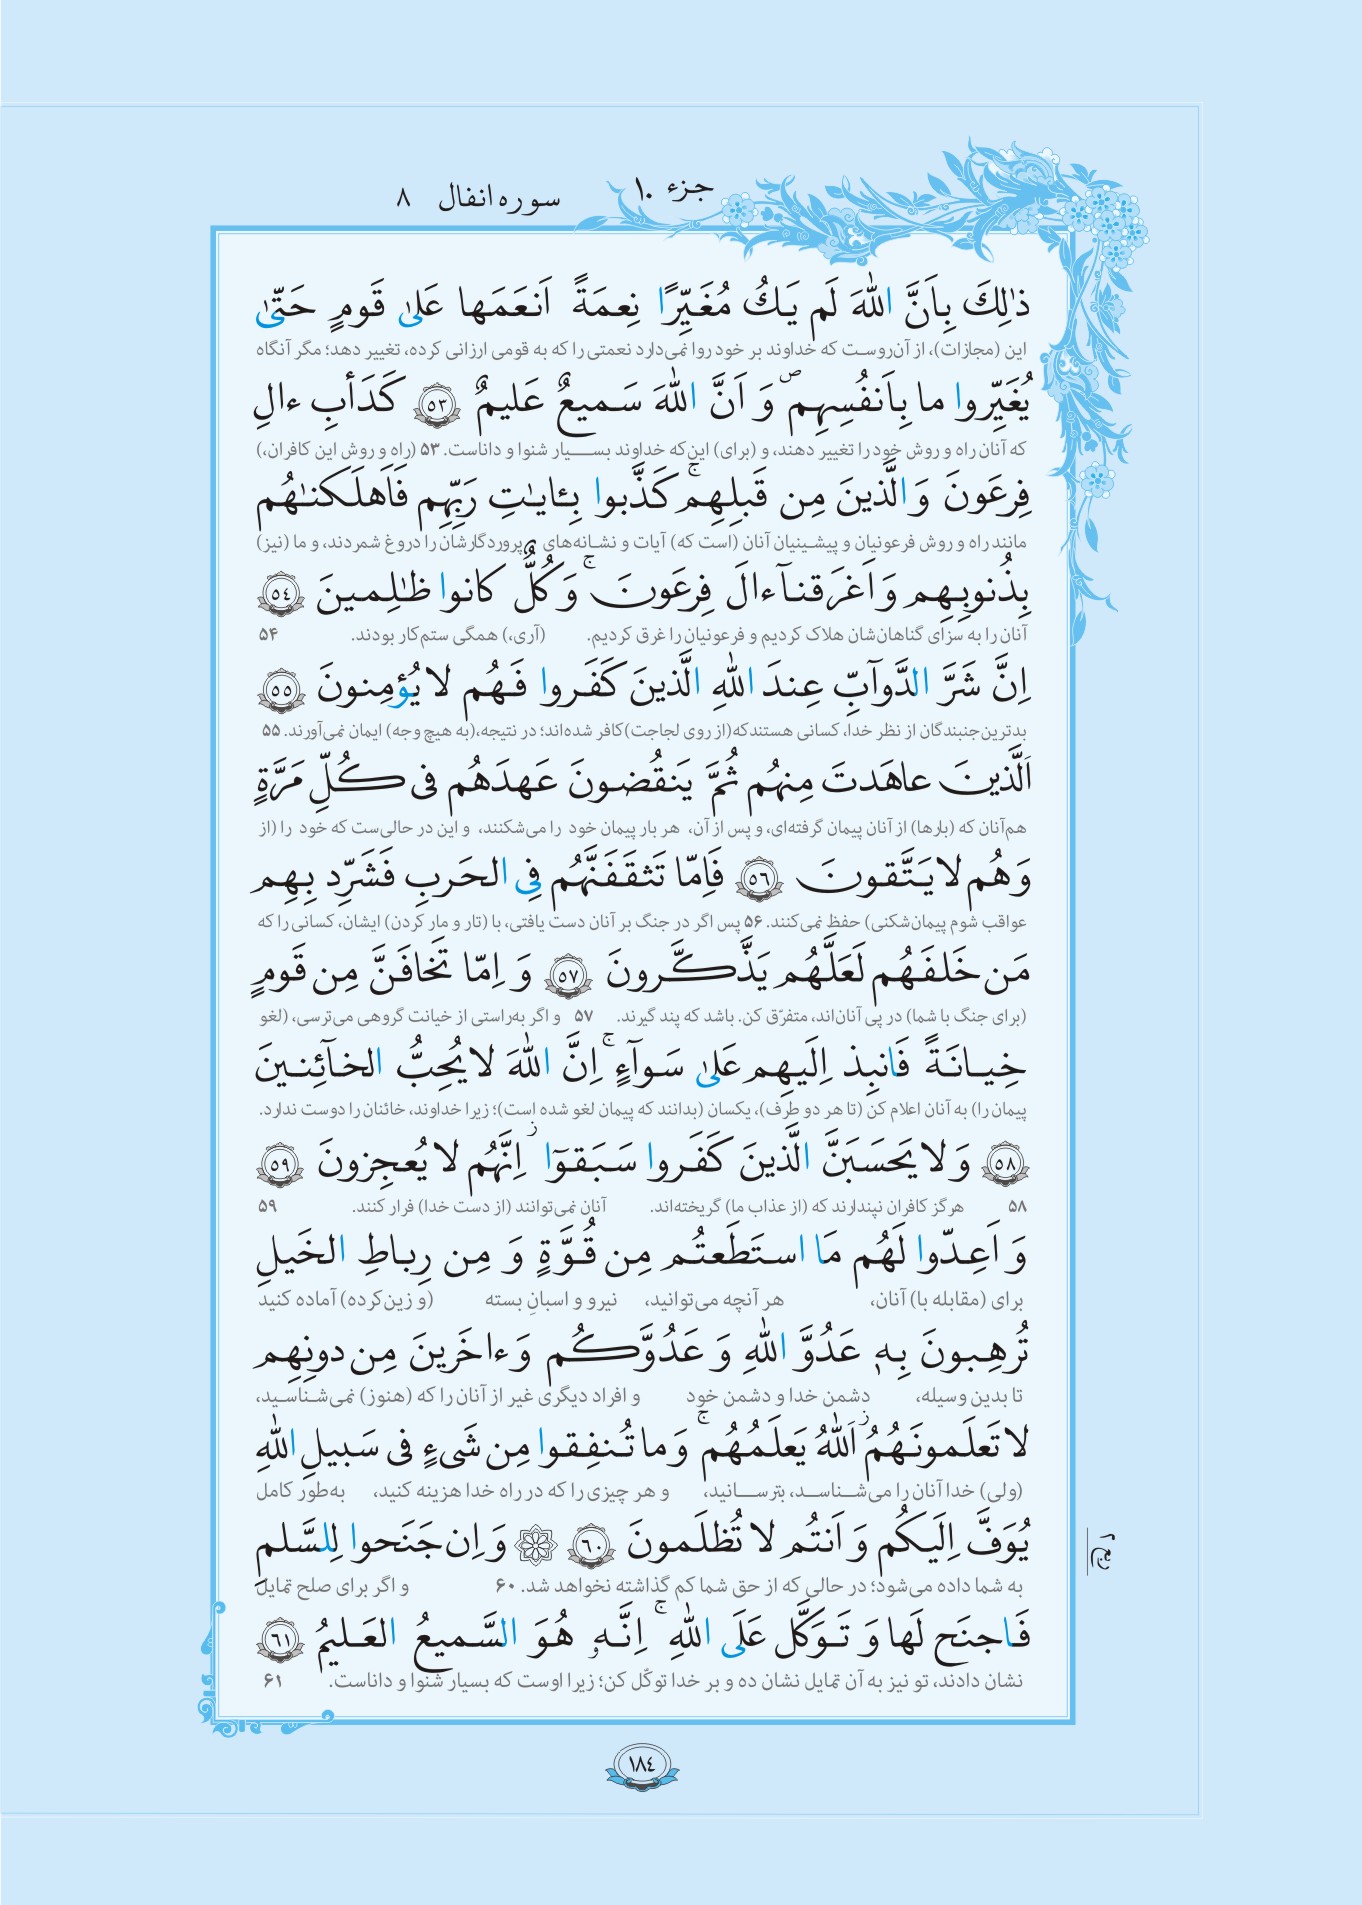 جزء ۱۰
سوره انفال ۸
ذٰلِكَ بِاَنَّ اللّٰهَ لَم يَكُ مُغَيِّرًا نِعمَةً اَنعَمَها عَلىٰ قَومٍ حَتّىٰ
این (مجازات)، از آن‌روست که خداوند بر خود روا نمی‌دارد نعمتی را که به قومی ارزانی کرده، تغییر دهد؛ مگر آنگاه
يُغَيِّروا ما بِاَنفُسِهِم ۖ وَ اَنَّ اللّٰهَ سَميعٌ عَليمٌ ﴿٥٣﴾ كَدَأبِ ءالِ
که آنان راه و روش خود را تغییر دهند، و (برای) این‌که خداوند بسیار شنوا و داناست. ۵۳ (راه و روش این کافران،)
فِرعَونَ وَ الَّذينَ مِن قَبلِهِم ۚ كَذَّبوا بِـٔايٰتِ رَبِّهِم فَاَهلَكنٰهُم
مانند راه و روش فرعونیان و پیشینیان آنان (است که) آیات و نشانه‌های پروردگارشان را دروغ شمردند، و ما (نیز)
بِذُنوبِهِم وَ اَغرَقنآ ءالَ فِرعَونَ ۚ وَ كُلٌّ كانوا ظٰلِمينَ ﴿٥٤﴾
آنان را به سزای گناهان‌شان هلاک کردیم و فرعونیان را غرق کردیم. (آری،) همگی ستم‌کار بودند. ۵۴
اِنَّ شَرَّ الدَّوآبِّ عِندَ اللّٰهِ الَّذينَ كَفَروا فَهُم لا يُؤمِنونَ ﴿٥٥﴾
بدترین جنبندگان از نظر خدا، کسانی هستند که (از روی لجاجت) کافر شده‌اند؛ در نتیجه، (به هیچ وجه) ایمان نمی‌آورند. ۵۵
اَلَّذينَ عاهَدتَ مِنهُم ثُمَّ يَنقُضونَ عَهدَهُم فى كُلِّ مَرَّةٍ
هم‌آنان که (بارها) از آنان پیمان گرفته‌ای، و پس از آن، هر بار پیمان خود را می‌شکنند، و این در حالی‌ست که خود را (از
وَ هُم لا يَتَّقونَ ﴿٥٦﴾ فَاِمّا تَثقَفَنَّهُم فِى الحَربِ فَشَرِّد بِهِم
عواقب شوم پیمان‌شکنی) حفظ نمی‌کنند. ۵۶ پس اگر در جنگ بر آنان دست یافتی، با (تار و مار کردن) ایشان، کسانی را که
مَن خَلفَهُم لَعَلَّهُم يَذَّكَّرونَ ﴿٥٧﴾ وَ اِمّا تَخافَنَّ مِن قَومٍ
(برای جنگ با شما) در پی آنان‌اند، متفرّق کن. باشد که پند گیرند. ۵۷ و اگر به‌راستی از خیانت گروهی می‌ترسی، (لغو
خِيانَةً فَانبِذ اِلَيهِم عَلىٰ سَوآءٍ ۚ اِنَّ اللّٰهَ لا يُحِبُّ الخآئِنينَ
پیمان را) به آنان اعلام کن (تا هر دو طرف)، یکسان (بدانند که پیمان لغو شده است)؛ زیرا خداوند، خائنان را دوست ندارد.
﴿٥٨﴾ وَ لا يَحسَبَنَّ الَّذينَ كَفَروا سَبَقوٓا ز اِنَّهُم لا يُعجِزونَ ﴿٥٩﴾
۵۸ هرگز کافران نپندارند که (از عذاب ما) گریخته‌اند. آنان نمی‌توانند (از دست خدا) فرار کنند. ۵۹
وَ اَعِدّوا لَهُم مَا استَطَعتُم مِن قُوَّةٍ وَ مِن رِباطِ الخَيلِ
برای (مقابله با) آنان، هر آنچه می‌توانید، نیرو و اسبانِ بسته (و زین‌کرده) آماده کنید
تُرهِبونَ بِهٖ عَدُوَّ اللّٰهِ وَ عَدُوَّكُم وَ ءاخَرينَ مِن دونِهِم
تا بدین وسیله، دشمن خدا و دشمن خود و افراد دیگری غیر از آنان را که (هنوز) نمی‌شناسید،
لا تَعلَمونَهُمُ ز اَللّٰهُ يَعلَمُهُم ۚ وَ ما تُنفِقوا مِن شَىءٍ فى سَبيلِ اللّٰهِ
(ولی) خدا آنان را می‌شناسد، بترسانید، و هر چیزی را که در راه خدا هزینه کنید، به‌طور کامل
يُوَفَّ اِلَيكُم وَ اَنتُم لا تُظلَمونَ ﴿٦٠﴾ ۞ وَ اِن جَنَحوا لِلسَّلمِ
به شما داده می‌شود؛ در حالی که از حق شما کم گذاشته نخواهد شد. ۶۰ و اگر برای صلح تمایل
فَاجنَح لَها وَ تَوَكَّل عَلَى اللّٰهِ ۚ اِنَّهٗ هُوَ السَّميعُ العَليمُ ﴿٦١﴾
نشان دادند، تو نیز به آن تمایل نشان ده و بر خدا توکّل کن؛ زیرا اوست که بسیار شنوا و داناست. ۶۱
١٨٤